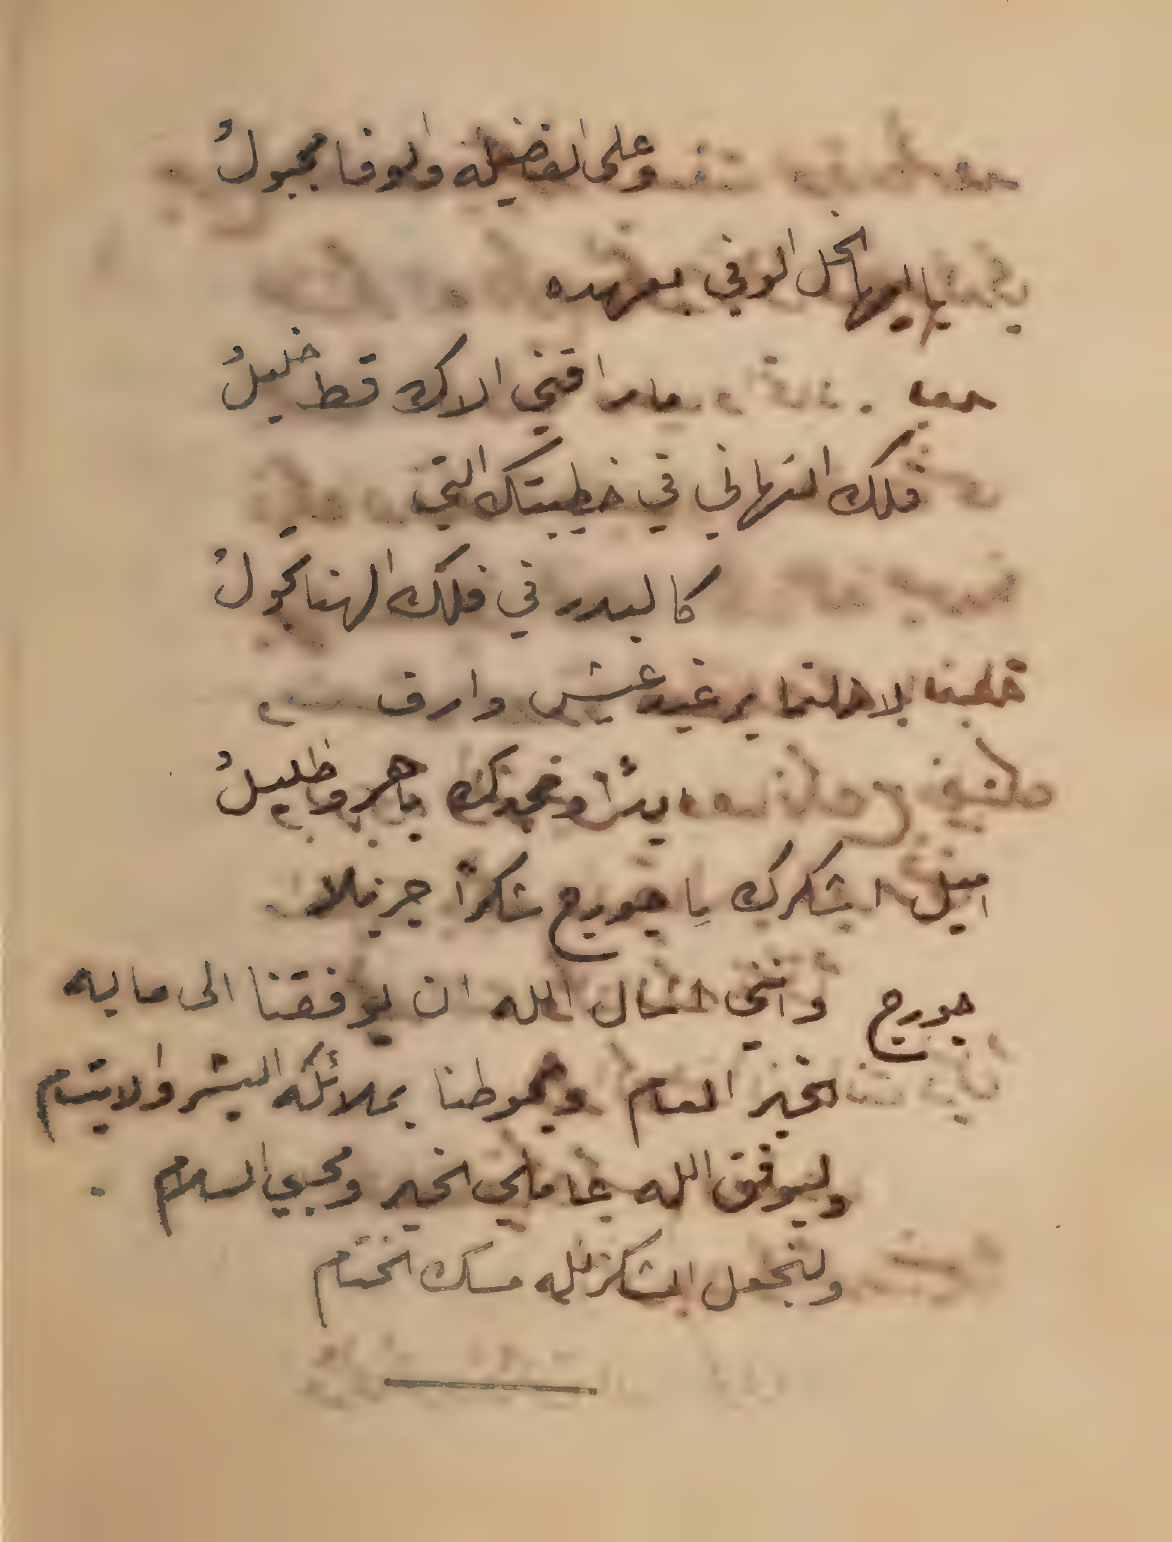 وعلى الفضيلة والوفا مجبولُ
يا ايها الخل الوفي بعهده
ما راقني الاك قط خليلُ
فلك التهاني في خطيبتك التي
كالبدر في فلك الهنا تجولُ
برغيد عيش وارف
ومجدك باهر وظليلُ
اميل اشكرك يا جورج شكراً جزيلا .
جورج وانني اسأل الله ان يوفقنا الى ما به
الخير العام ويحوطنا بملائكه البشر والابتسام
وليوفق الله عاملي الخير ومحبي السلام .
ولنجعل الشكر لله مسك الختام